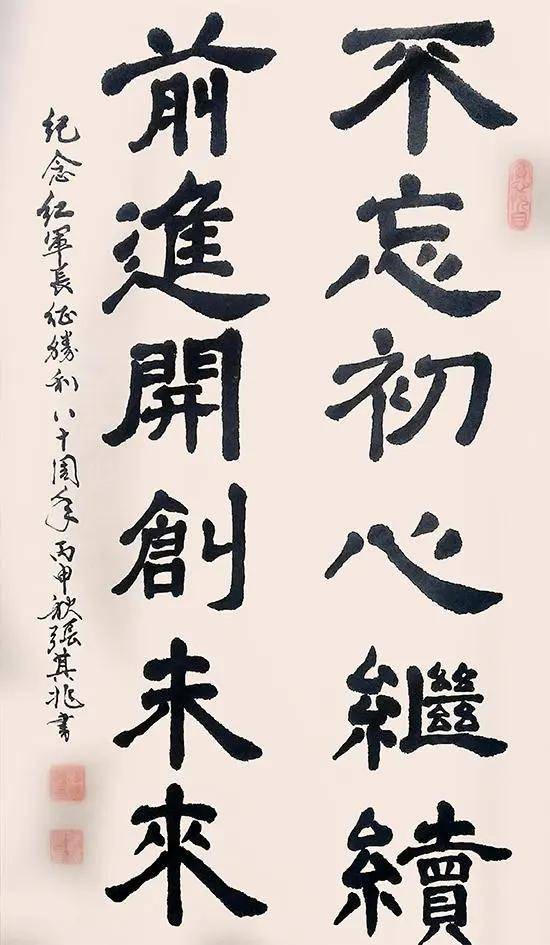 不忘初心繼續
前進開創未來
紀念紅軍長征勝利八十周年丙申秋張其兆書